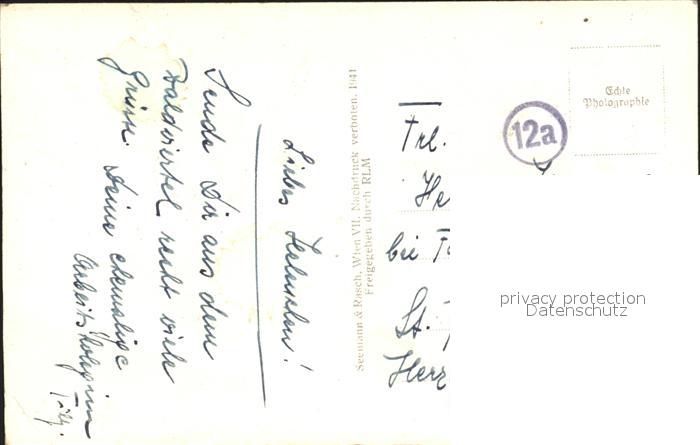 Liebes Helenchen!
Sende Dir aus dem
Waldviertel recht viele
Grüsse. Deine ehemalige
Arbeitskollegin
Seemann & Rasch, Wien VII. Nachdruck verboten. 1941
Freigegeben durch RLM
Echte
Photographie
12a
Frl.
He
bei
St.
Herz
privacy protection
Datenschutz